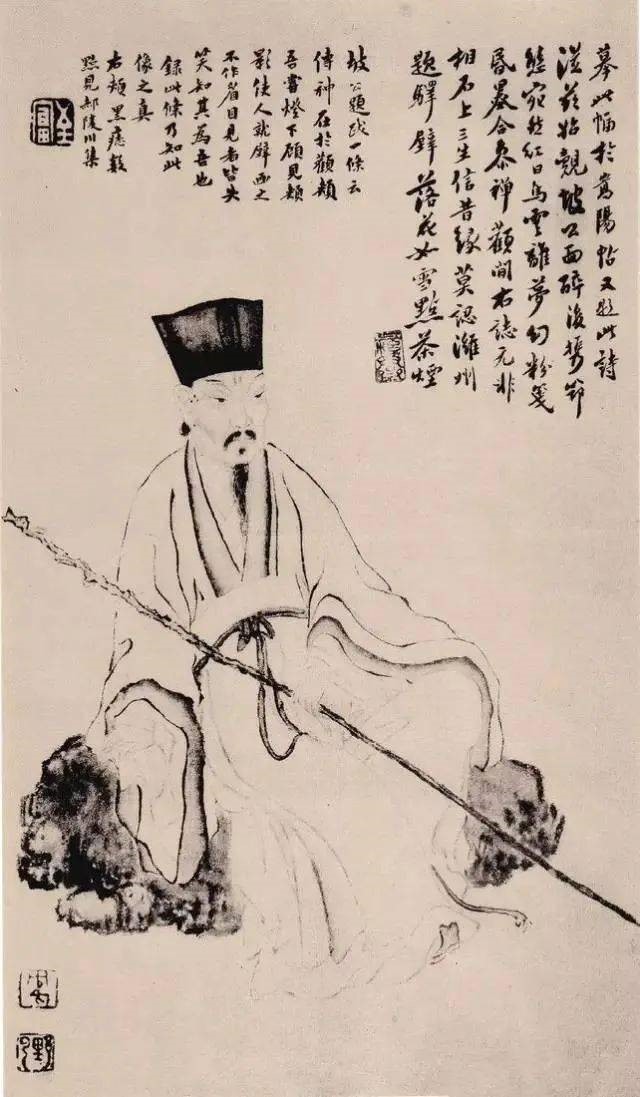 摹此幅於嵩陽帖又題此詩
從茲始覿坡公面醉後攜笻
態宛然紅日烏雲離夢幻粉箋
昏墨合參禪顴間右誌元非
相石上三生信昔緣莫認濰州
題驛壁落花如雪點茶煙
坡公題跋一條云
傳神在於顴頰
吾嘗燈下顧見頰
影使人就壁畫之
不作眉目見者皆失
笑知其為吾也
錄此條乃知此
像之真
右頰黑痣數
點見郝陵川集